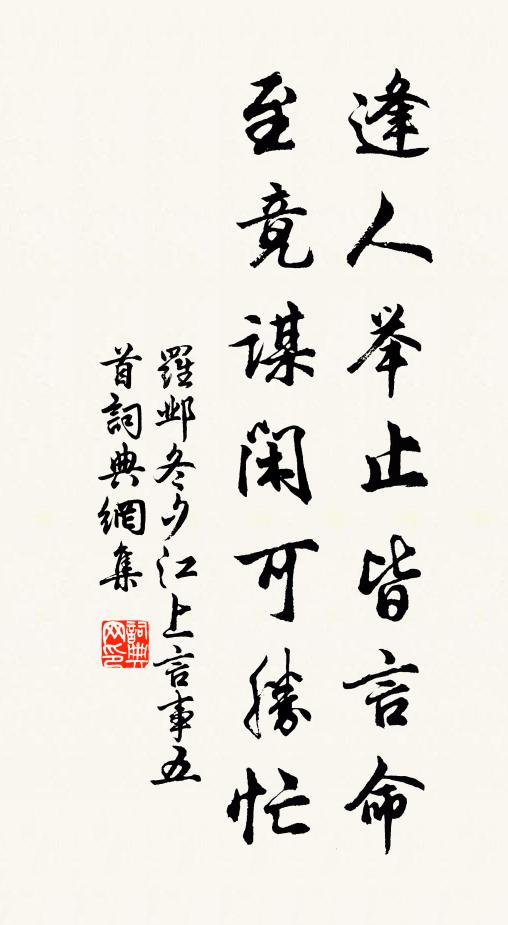 逢人举止皆言命
至竟謀閑可勝忙
羅鄴冬夕江上言事五
首詞典網集
詞典网印